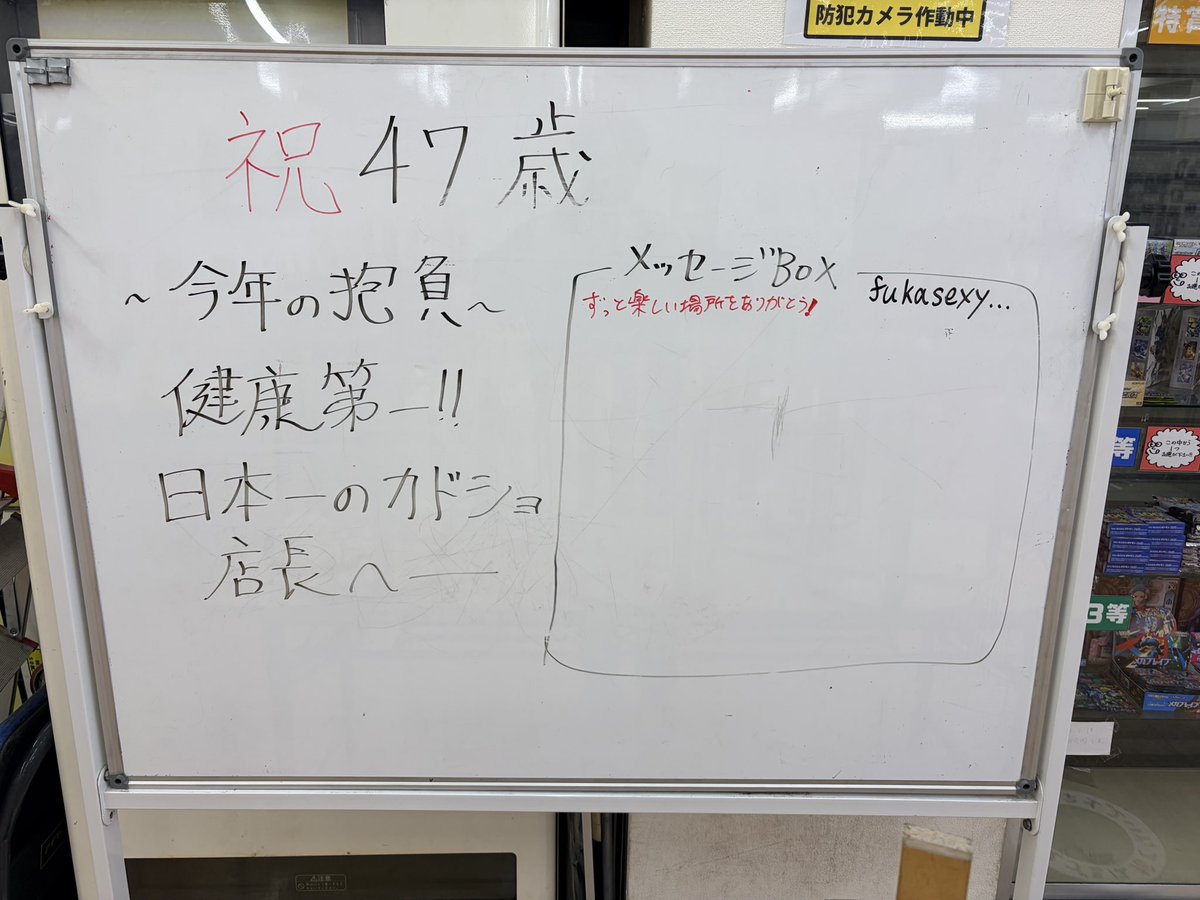 防犯カメラ作動中
祝47歳
~今年の抱負~
健康第一!!
日本一のカドショ
店長へ──
メッセージBOX
ずっと楽しい場所をありがとう!
fukasexy...
等
この中から
1つ
3等
メガブレイブ
⚠注意